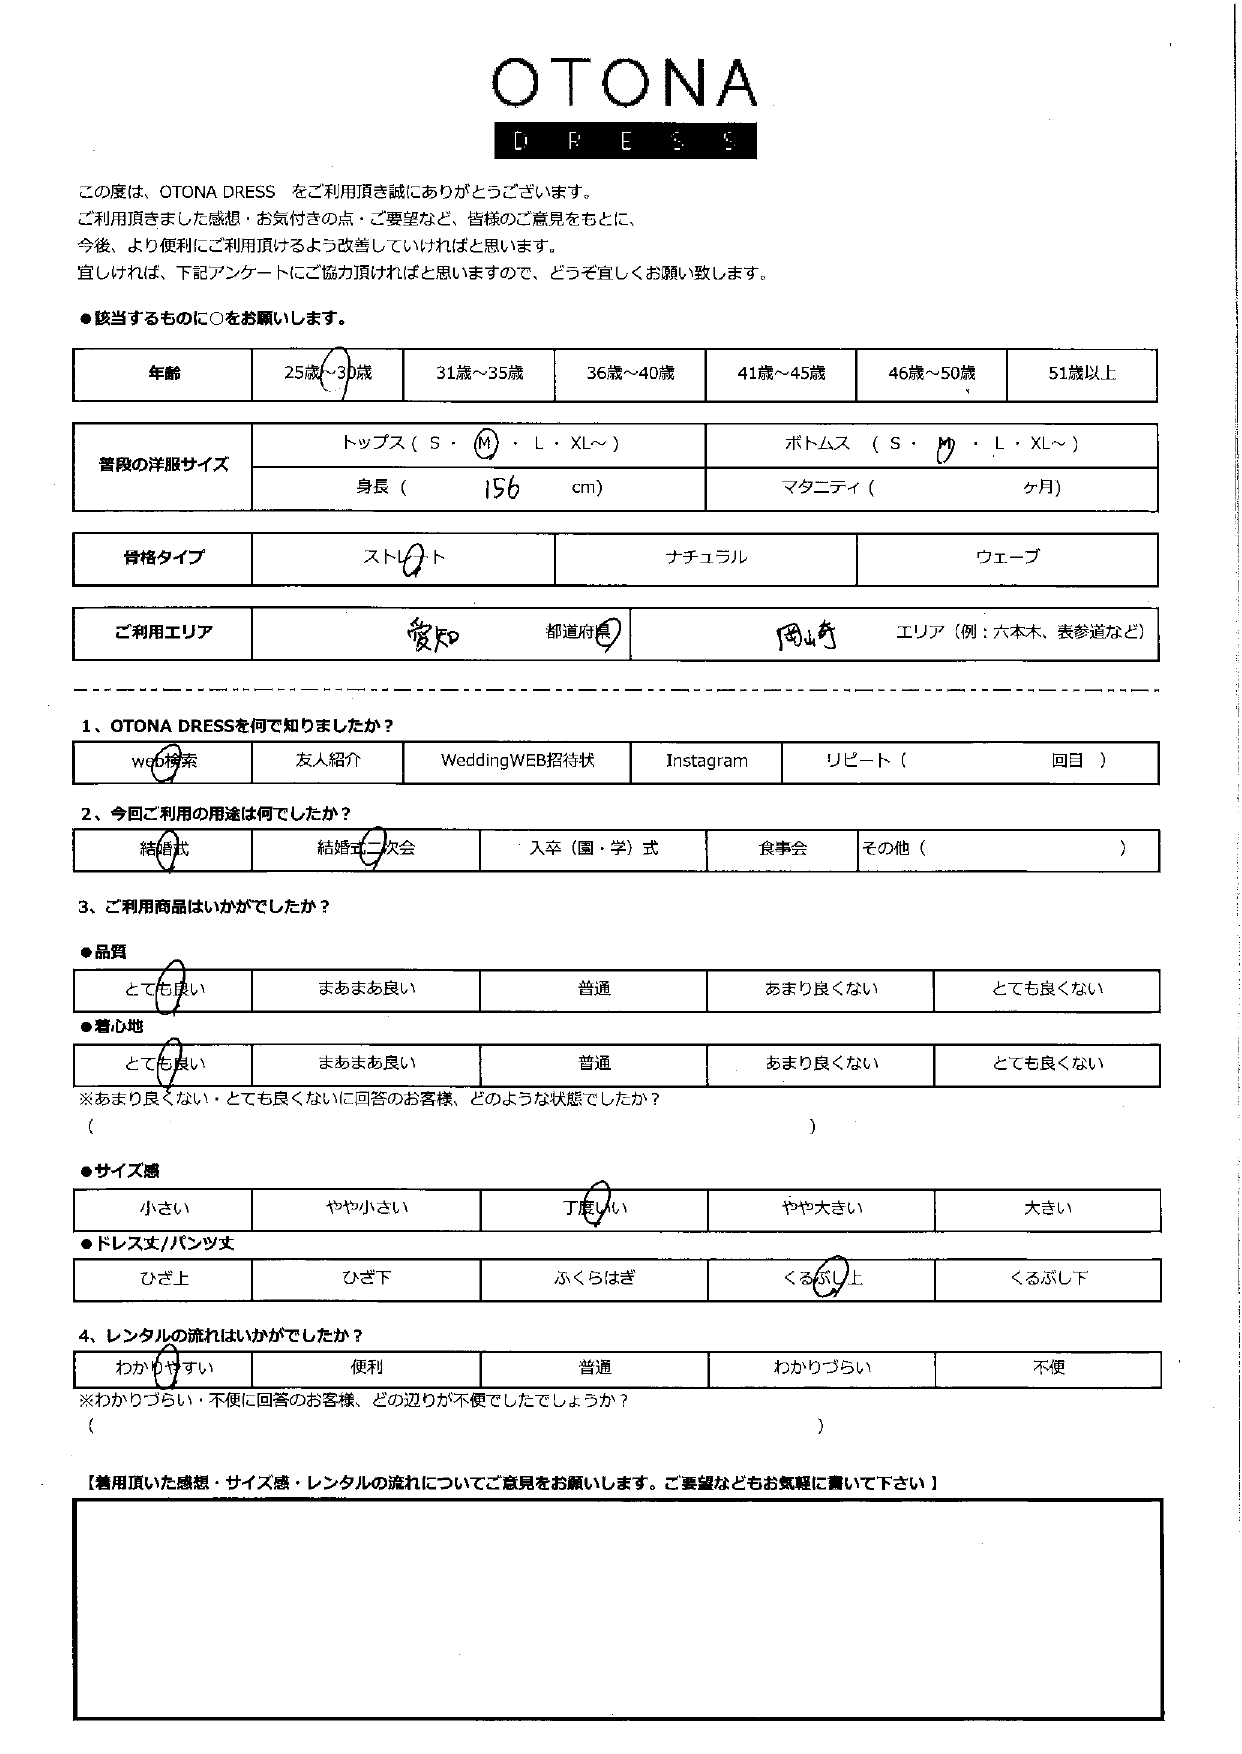 OTONA
DRESS
この度は、OTONA DRESS　をご利用頂き誠にありがとうございます。
ご利用頂きました感想・お気付きの点・ご要望など、皆様のご意見をもとに、
今後、より便利にご利用頂けるよう改善していければと思います。
宜しければ、下記アンケートにご協力頂ければと思いますので、どうぞ宜しくお願い致します。
●該当するものに○をお願いします。
年齢 25歳～30歳 31歳～35歳 36歳～40歳 41歳～45歳 46歳～50歳 51歳以上
普段の洋服サイズ トップス ( S ・ M ・ L ・ XL～ ) ボトムス ( S ・ M ・ L ・ XL～ )
身長 ( 156 cm) マタニティ ( ヶ月)
骨格タイプ ストレート ナチュラル ウェーブ
ご利用エリア 愛知 都道府県 岡崎 エリア（例：六本木、表参道など）
1、OTONA DRESSを何で知りましたか？
web検索 友人紹介 WeddingWEB招待状 Instagram リピート（ 回目 ）
2、今回ご利用の用途は何でしたか？
結婚式 結婚式二次会 入卒（園・学）式 食事会 その他（ ）
3、ご利用商品はいかがでしたか？
●品質
とても良い まあまあ良い 普通 あまり良くない とても良くない
●着心地
とても良い まあまあ良い 普通 あまり良くない とても良くない
※あまり良くない・とても良くないに回答のお客様、どのような状態でしたか？
( )
●サイズ感
小さい やや小さい 丁度いい やや大きい 大きい
●ドレス丈/パンツ丈
ひざ上 ひざ下 ふくらはぎ くるぶし上 くるぶし下
4、レンタルの流れはいかがでしたか？
わかりやすい 便利 普通 わかりづらい 不便
※わかりづらい・不便に回答のお客様、どの辺りが不便でしたでしょうか？
( )
【着用頂いた感想・サイズ感・レンタルの流れについてご意見をお願いします。ご要望などもお気軽に書いて下さい 】